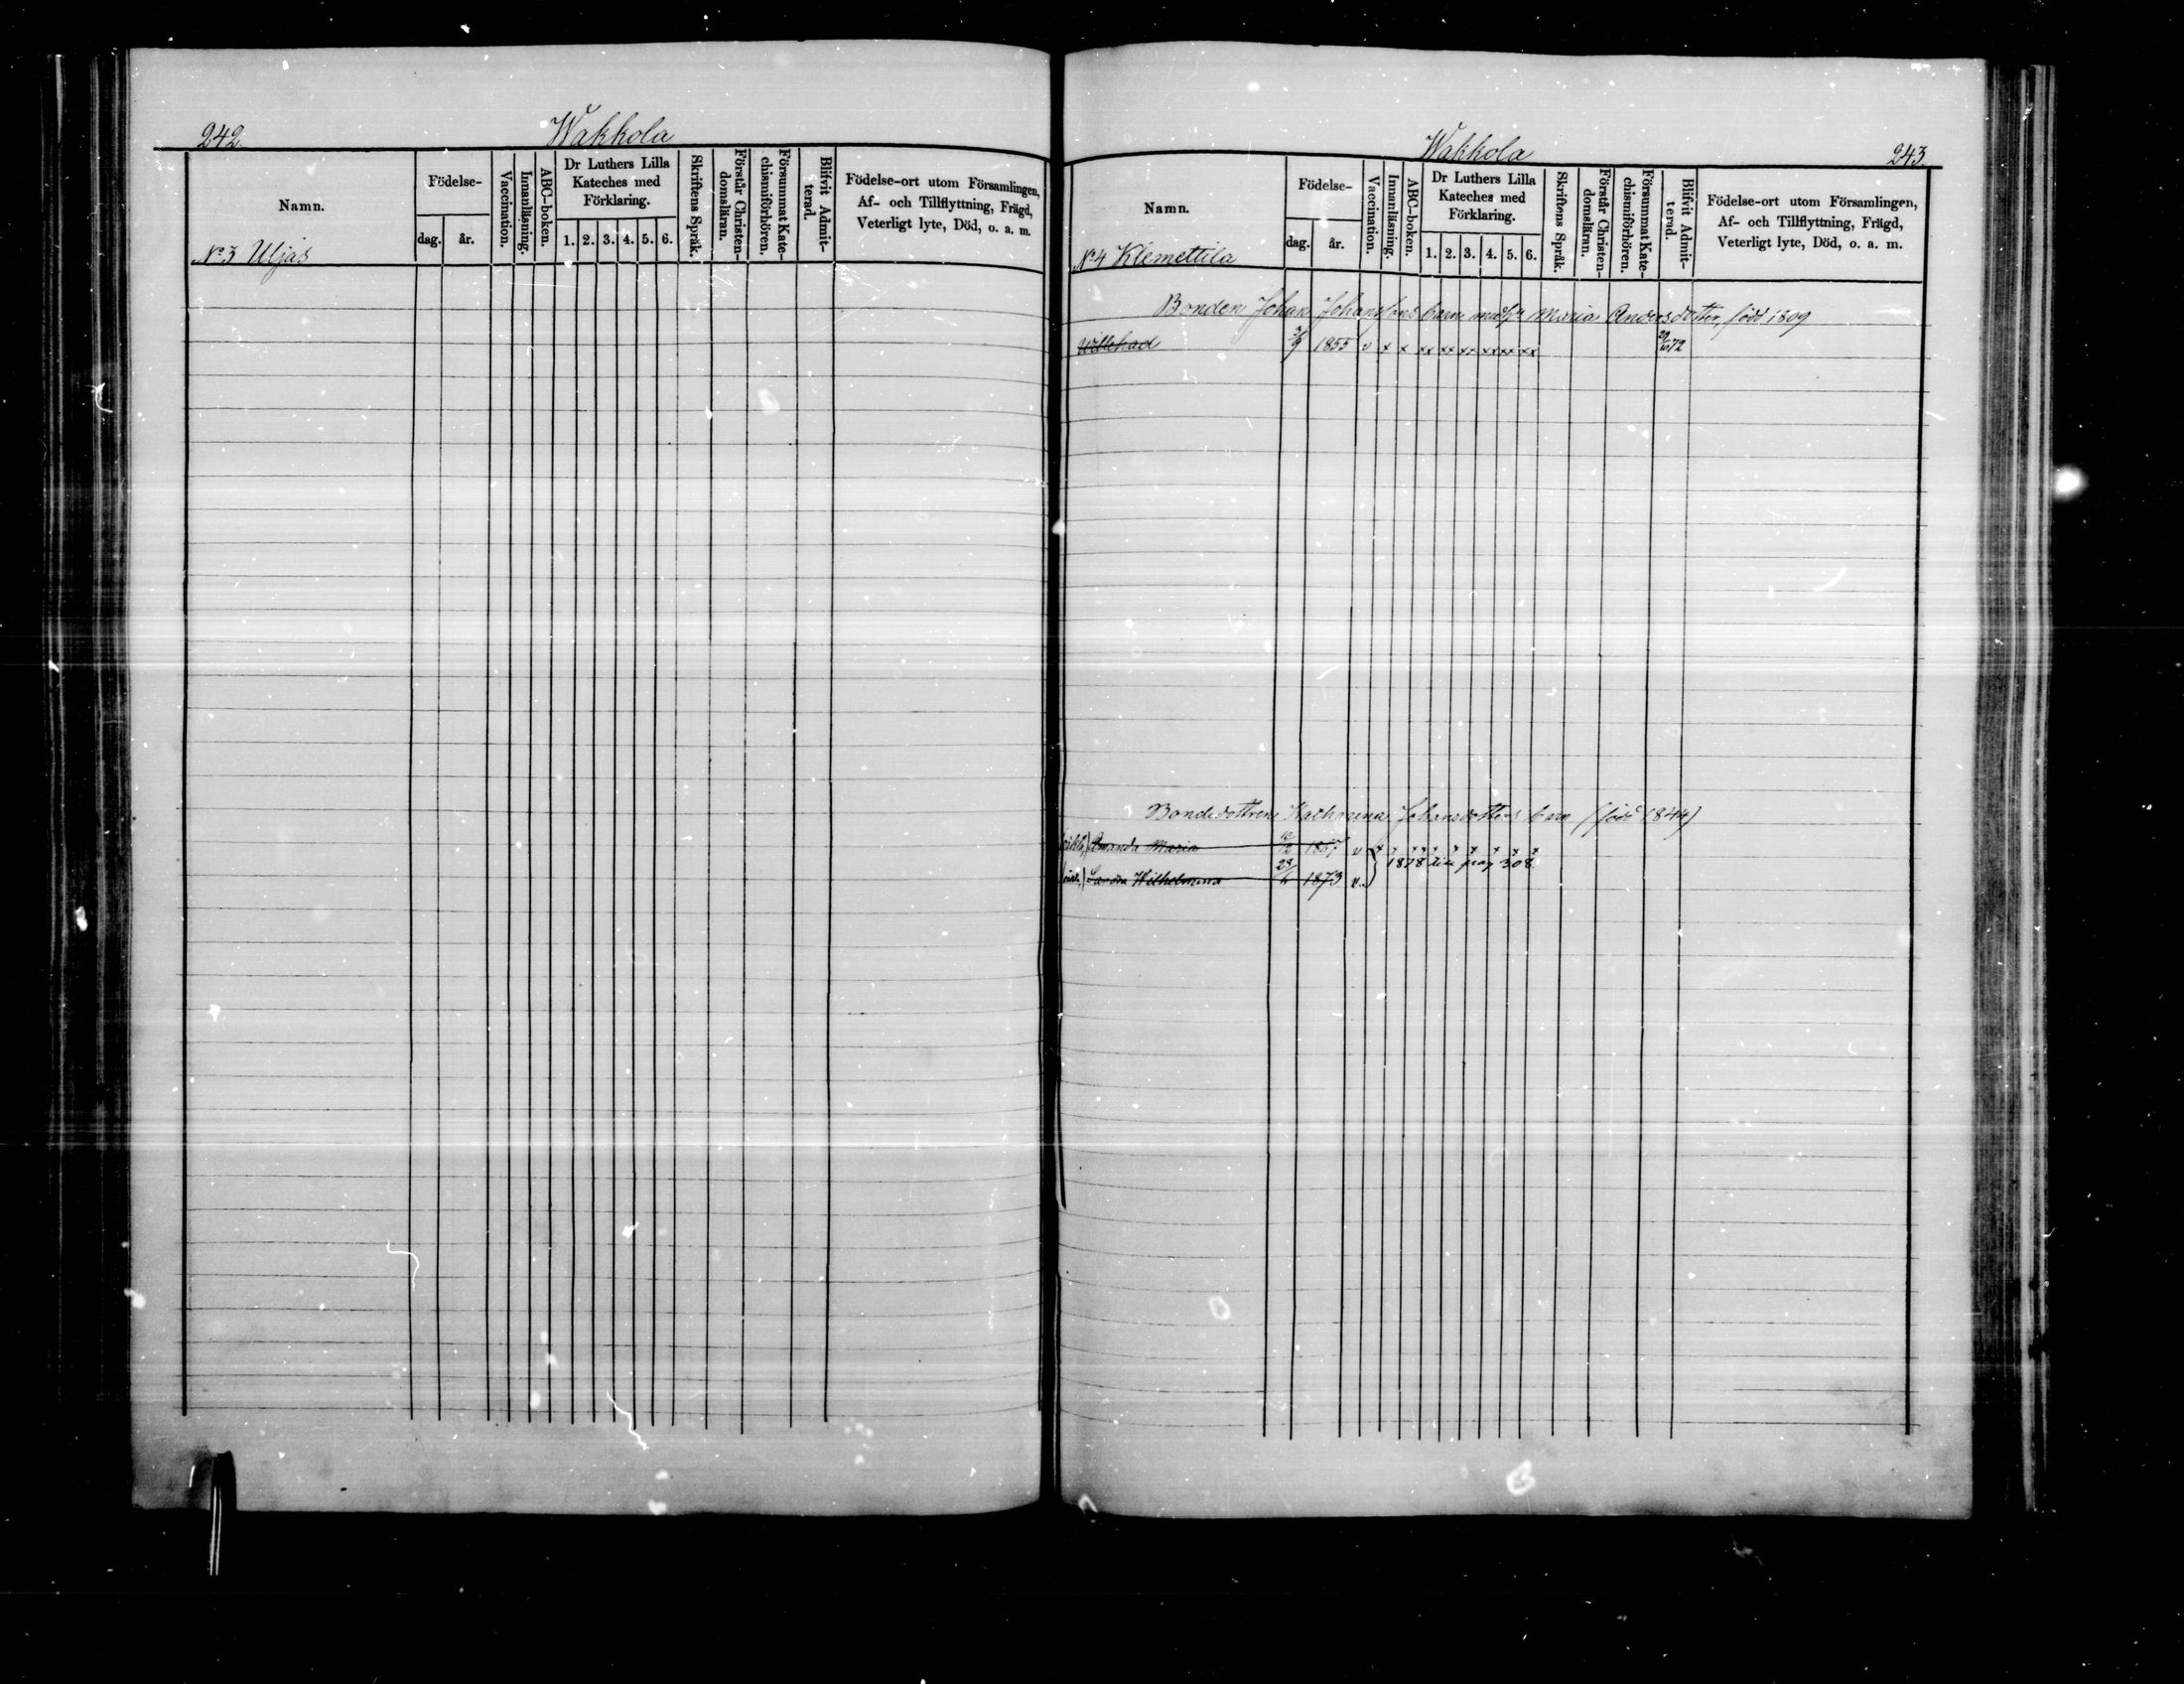 242.
Wakkola
Namn.
Födelse-
dag. år.
Vaccination.
Innanläsning.
ABC-boken.
Dr Luthers Lilla
Kateches med
Förklaring.
1. 2. 3. 4. 5. 6.
Skriftens Språk.
Förstår Christen-
domsläran.
Försummat Kate-
chismiförhören.
Blifvit Admit-
terad.
Födelse-ort utom Församlingen,
Af- och Tillflyttning, Frägd,
Veterligt lyte, Död, o. a. m.
No 3 Uljas
Wakkola
243.
Namn.
Födelse-
dag. år.
Vaccination.
Innanläsning.
ABC-boken.
Dr Luthers Lilla
Kateches med
Förklaring.
1. 2. 3. 4. 5. 6.
Skriftens Språk.
Förstår Christen-
domsläran.
Försummat Kate-
chismiförhören.
Blifvit Admit-
terad.
Födelse-ort utom Församlingen,
Af- och Tillflyttning, Frägd,
Veterligt lyte, Död, o. a. m.
No 4 Klemettila
Bonden Johan Johanssons barn Maria Andersdotter, född 1809
Willehad 1855 v x x xx xx xx xx xx xx 72
Johansdotters barn (född 1844)
Amanda Maria 1867 v x x x x x x x x
1878 pag 308
Wilhelmina 1873 v.